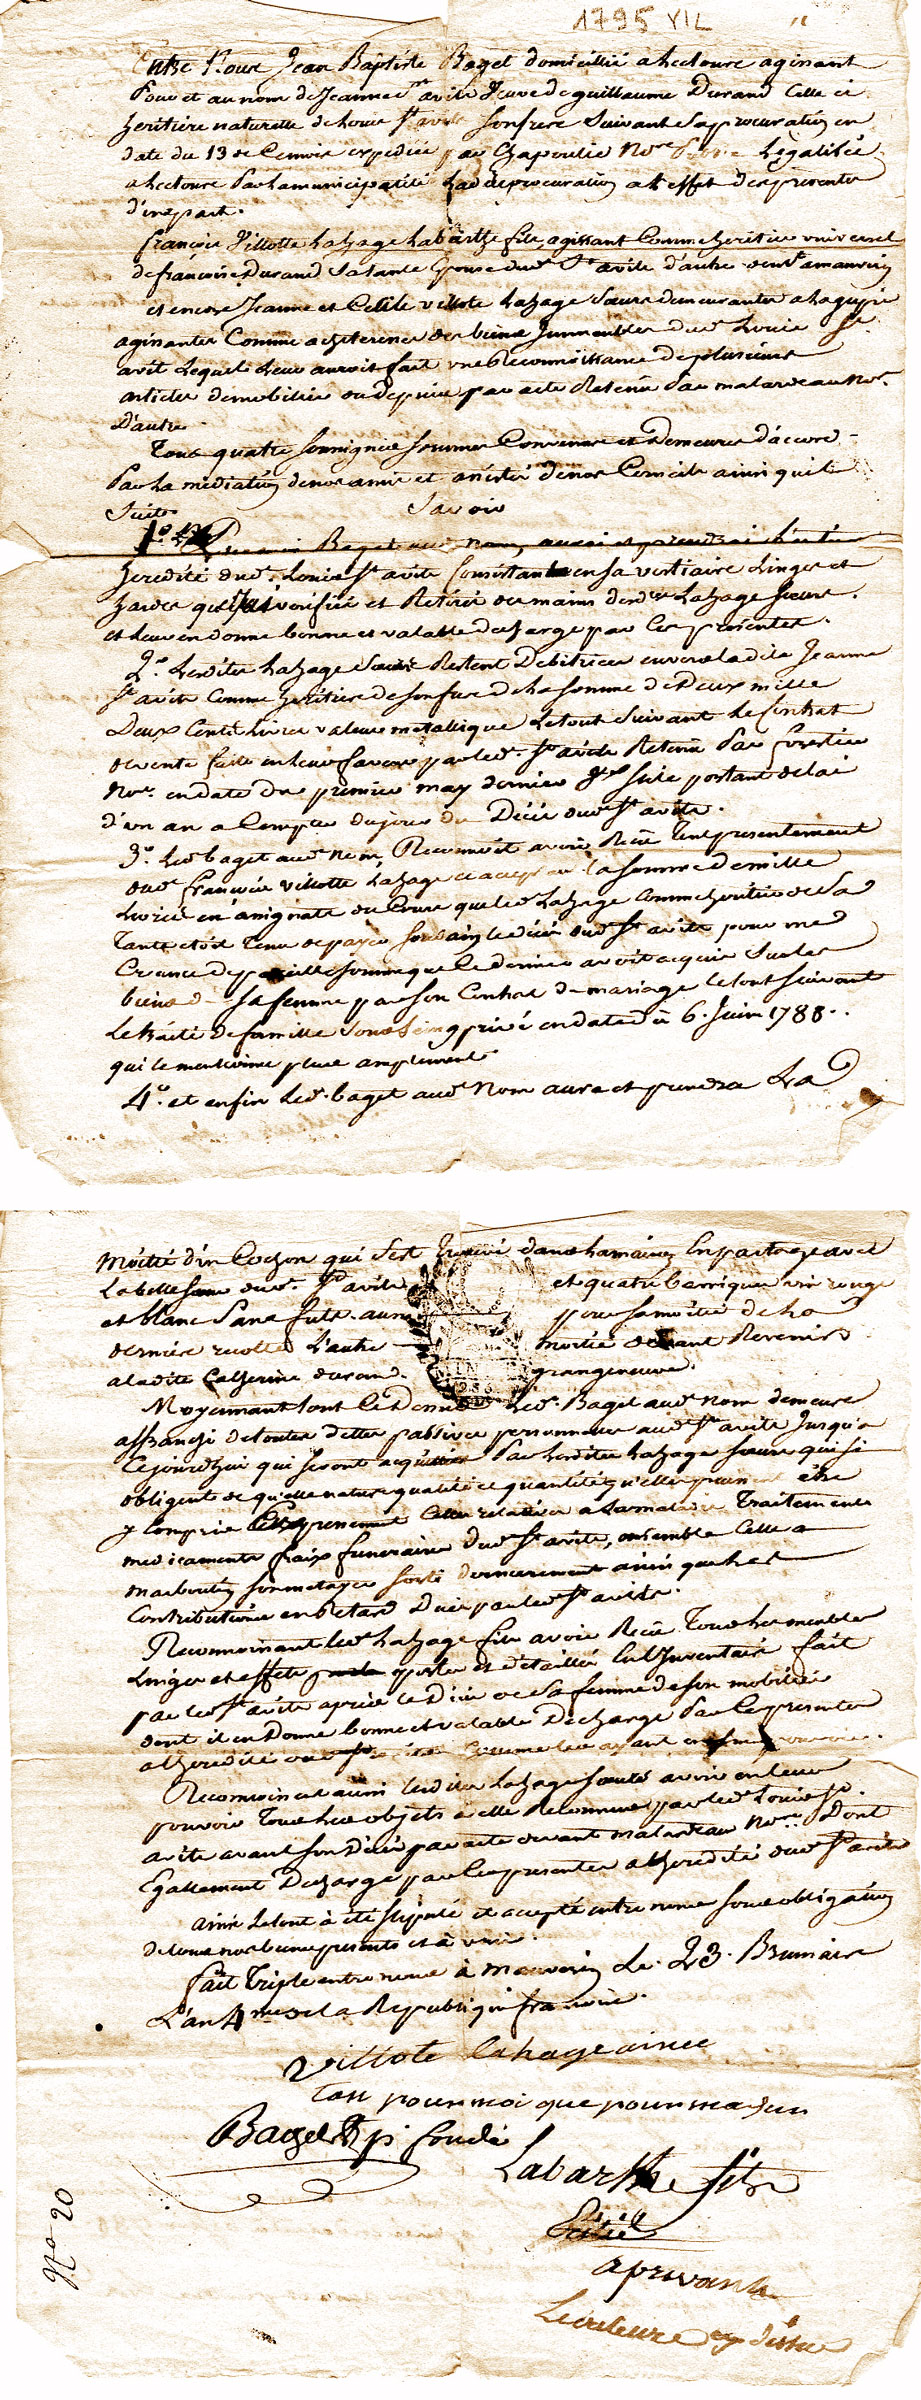 1795 VIL
Entre Nous Jean Baptiste Baget domicillié a Lectoure agissant
Pour et au nom de Jeanne St avit Veuve de guillaume Durand Celle ci
heritiere naturelle de Louis St avit son frere Suivant Sa procuration en
date du 13 de Ce mois expediée par Chapoulié Nore Legalisée
a Lectoure Par La municipalité Lad. procuration a L'effet des presentes
d'une part.
françois Villotte Lahage Labarthe fils, agissant Comme heritier universel
de françoise Durand Sa tante Epouse dud. St avit d'autre
et encore Jeanne et Cecile villote Lahage Sœurs demeurantes a Lagupie
agissantes Comme acheteuses des biens Immeubles dud. Louis St
avit Lequel Leur auroit fait une Reconnoissance de plusieurs
articles de mobilier par acte Retenu Par malardeau Nore.
D'autre
Tous quatre soussignés sommes Convenus et Demeurés d'accord
Par La mediation de nos amis et arrêté de nos Conseils ainsi qu'il
Suit. Savoir
1o. Baget aud. nom, aura et prendra L'entière
heredité dud. Louis St avit Consistante en sa vestiaire Linges et
hardes qu'il a verifié et Retiré des mains desd. Lahage sœurs.
et leur en donne bonne et valable decharge par Ces presentes.
2o. Lesdites Lahage Sœurs Restent Debitrices envers ladite Jeanne
St avit Comme heritiere de son frere de La somme de Deux mille
Deux Cents Livres valeur metallique Le tout Suivant Le Contrat
de vente faite en leur faveur par led. St avit Retenu Par forestier
Nore. en date du premier may dernier portant delai
d'un an a Compter du jour du Décès dud. St avit.
3o. Led. baget aud. nom, Reconnoit avoir Reçu tout presentement
dud. françois villotte Lahage la somme de mille
Livres en assignats du Cours que led. Lahage Comme heritier de Sa
Tante etoit Tenu de payer le décès dud. St avit pour une
Creance de pareille somme que Ce dernier avoit acquis Sur les
biens de Sa femme par son Contrat de mariage Le tout suivant
Le traité de famille sous seing privé en date du 6. Juin 1788.
qui le mentionne plus amplement.
4o. et enfin Led. baget aud. Nom aura et prendra La
Moitié d'un Cochon qui s'est trouvé dans La maison En partage avec
La belle sœur dud. St avit et quatre barriques vin rouge
et blanc Sans futs pour sa moitié de La
derniere recolte L'autre moitié devant Revenir
a ladite Catherine durand. grangeneuve.
Moyennant tout Ce Dessus Led. Baget aud. Nom demeure
affranchi de toutes dettes passives personnelles aud. St avit Jusqu'a
Ce jourd'hui qui seront acquittées Par Lesdites Lahage sœurs qui s'i
obligent de quelle nature qualité et quantité qu'elles puissent être
y Compris Celles relatives a Sa maladie Traitements
medicaments fraix funeraires dud. St avit, ensemble Celle a
son metayer sorti dernierement ainsi que Les
Contributions en Retard Dues par led. St avit.
Reconnoissant led. Lahage fils avoir Reçu Tous Les meubles
Linges et effets portés et détaillés En L'Inventaire fait
par led. St avit après le Décès de Sa femme de son mobilier
dont il en Donne bonne et valable Decharge Par Ces presentes
a L'heredité
Reconnoissent aussi Lesdites Lahage sœurs avoir en leur
pouvoir Tous Les objets a elle Reconnus par led. Louis St
avit avant son Décès par acte devant malardeau Nore. Dont
Egallement Decharge par Ces presentes a L'heredité dud. St avit
ainsi Le tout à été stipulé et accepté entre nous sous obligation
de tous nos biens presents et à venir.
fait Triple entre nous à Mauvezin Le 23. Brumaire
L'an 4me de la Republique francaise.
villote Lahage ainée
tan pour moi que pour ma seur
Baget fondé
Labarthe fils
aprouvant
Lecriture cy dessus
No 20